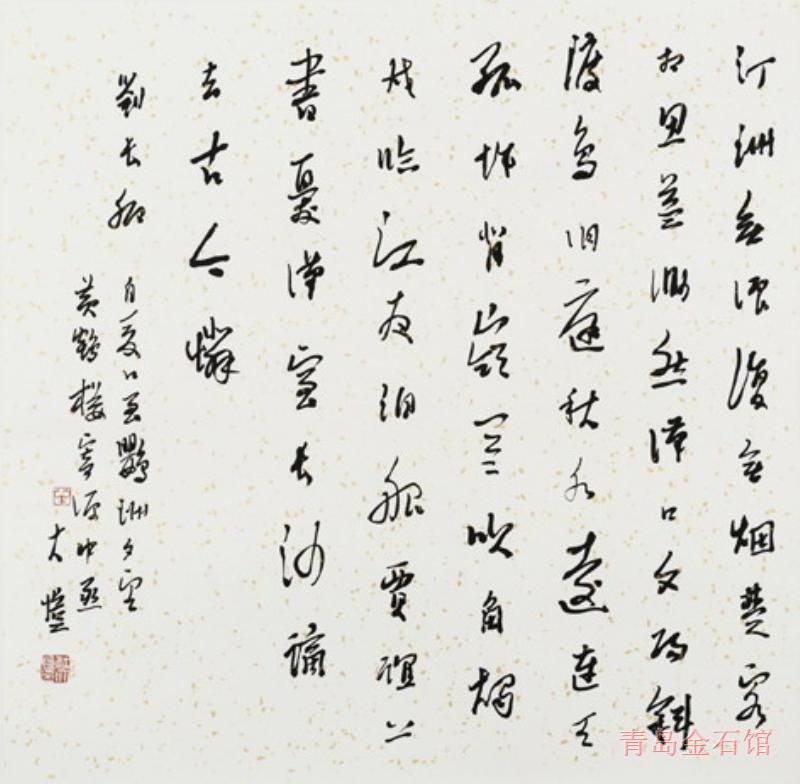 汀洲無浪復無烟楚客
相思益渺然漢口夕陽斜
渡鳥洞庭秋水遠連天
孤城背嶺寒吹角獨
戍臨江夜泊船賈誼上
書憂漢室長沙謫
去古今憐
劉長卿
自夏口至鸚洲夕望
黃鶴樓寄源中丞
大愷
青岛金石馆